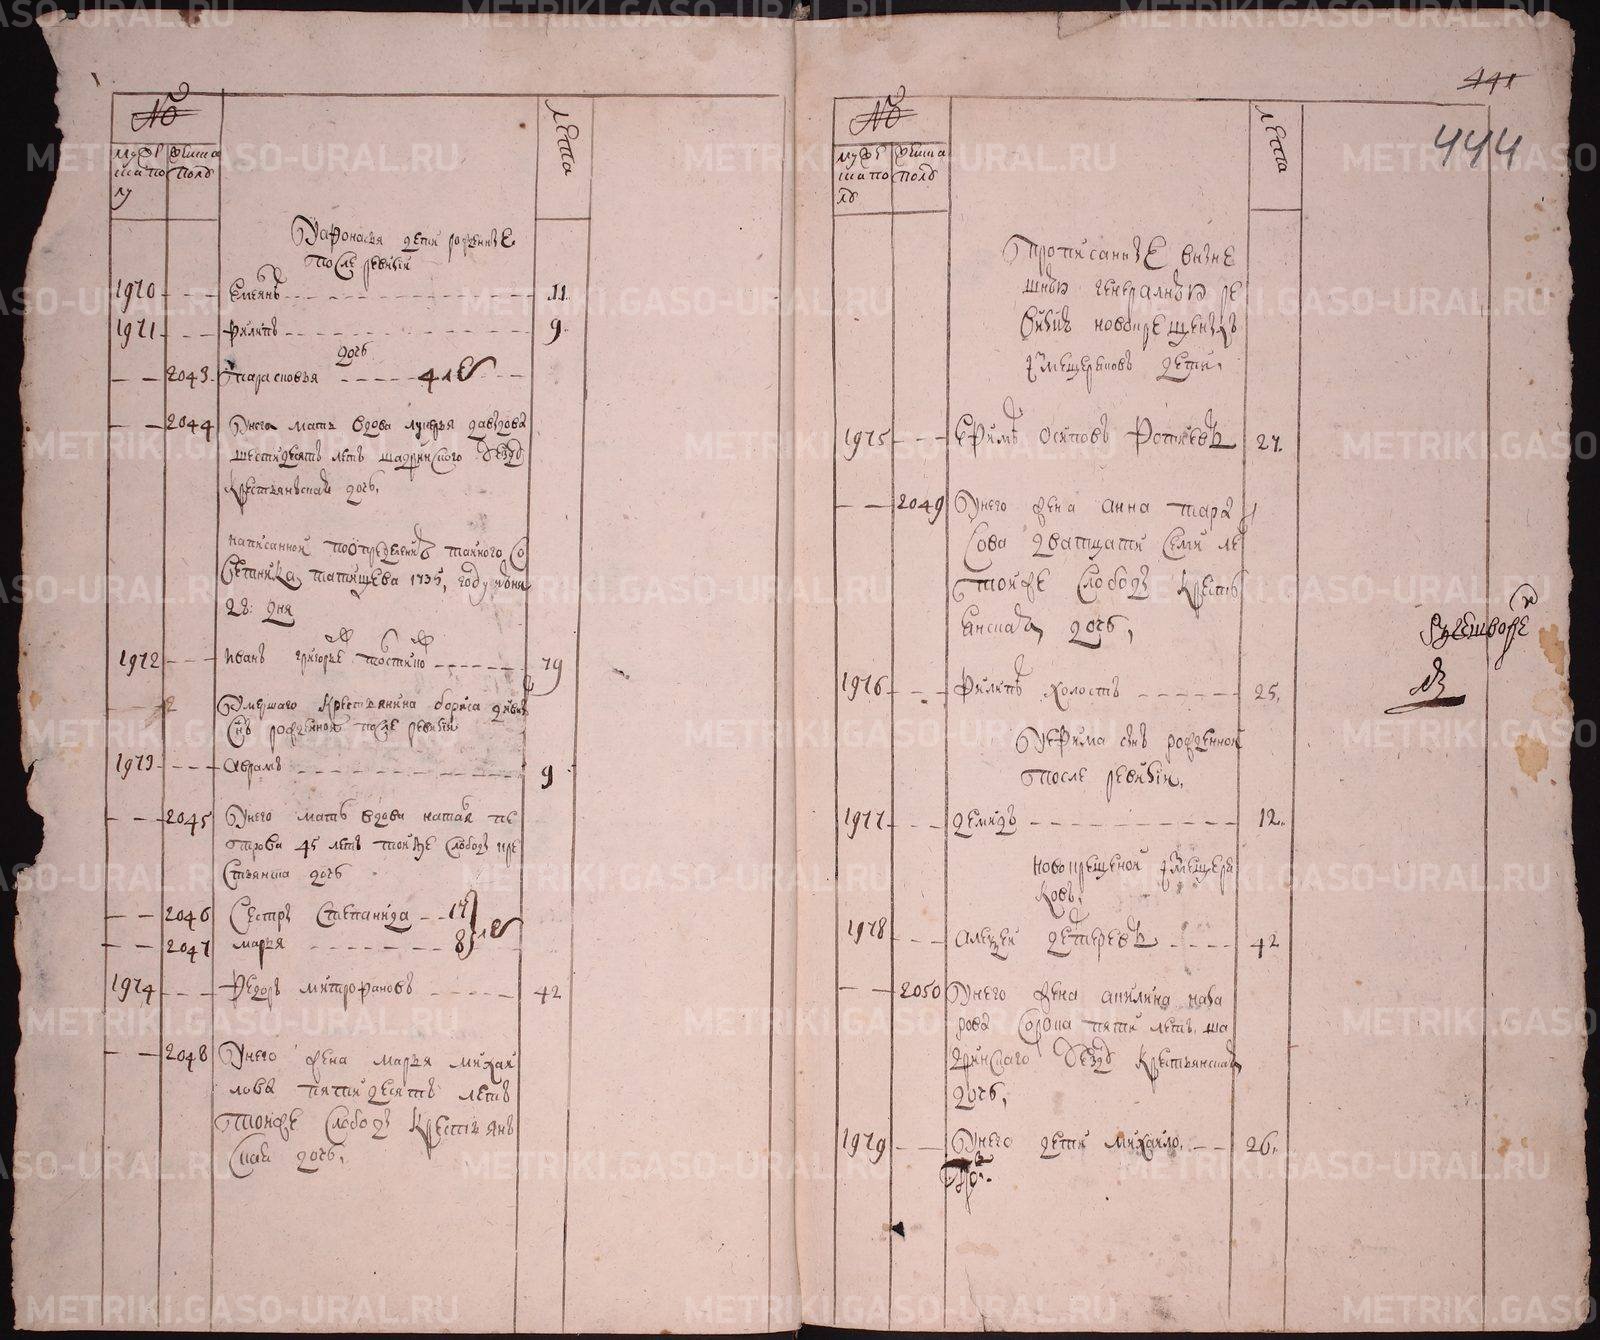 №
мужеска полу
женска полъ
лета
У афонасья дети рожденные
после ревизии
1970 емелянъ 11
1971 филипъ 9
дочь
2043 парасковья 4
2044 У него мать вдова лукерья давыдова
шестидесятъ летъ шадринского уезду
крестьянская дочь,
написанной по определению тайного со
ветника татищева 1735, году июня
28: дня
1972 иванъ григорьевъ 79
Умершаго крестьянина бориса
снъ рожденной после ревизии
1973 аврамъ 9
2045 У него мать вдова наталя пе
трова 45 летъ той же слободы кре
стьянска дочь
2046 Сестры Степанида 17
2047 марья 8
1974 Федоръ митрофановъ 42
2048 У него жена марья михаи
лова пятидесятъ летъ
той же Слободы крестьян
ская дочь,
441
444
№
мужеска полъ
женска полъ
лета
прописанные в ныне
шнъю генералную ре
визию новокрещеныхъ
ѕ мещеряковъ дети,
1975 ефимъ осиповъ 27.
2049 У него жена анна тара
сова дватцати семи ле
той же слободы кресть
енская дочь,
1976 Филипъ холостъ 25.
У ефима снъ рожденной
после ревизии,
1977 демидъ 12.
новокрещеной ѕ мещеря
ковъ,
1978 алексей 42
2050 У него жена акилина наза
рова сорока пяти летъ, ша
дринскаго уезду крестьянская
дочь,
1979 У него дети михайло, 26,
METRIKI.GASO-URAL.RU